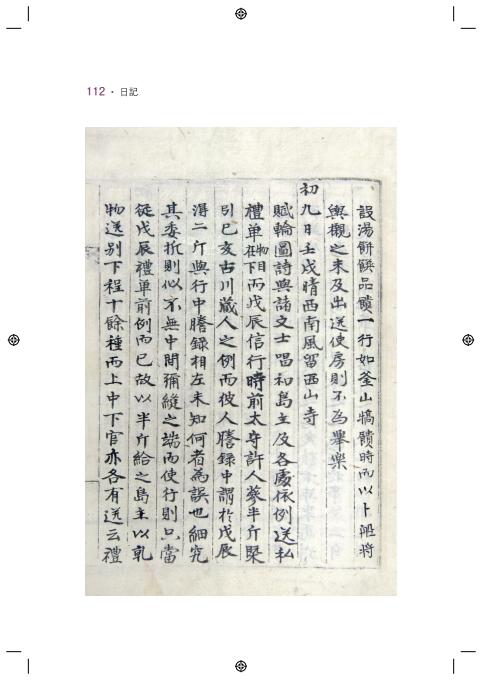 112 · 日記
設湯餠饌品饋一行如釜山犒饋時而以卜船將
與櫬之未及出送使房則不爲擧樂
初九日壬戌晴西南風留西山寺
賦輪圖詩與諸文士唱和島主及各處依例送私
禮單物目在下而戊辰信行時前太守許人蔘半斤槩
引已亥古川藏人之例而彼人謄錄中謂於戊辰
淂二斤與行中謄錄相左未知何者為誤也細究
其委折則似不無中間彌縫之端而使行則只當
從戊辰禮单前例而已故以半斤給之島主以乹
物送别下程十餘種而上中下官亦各有送云禮